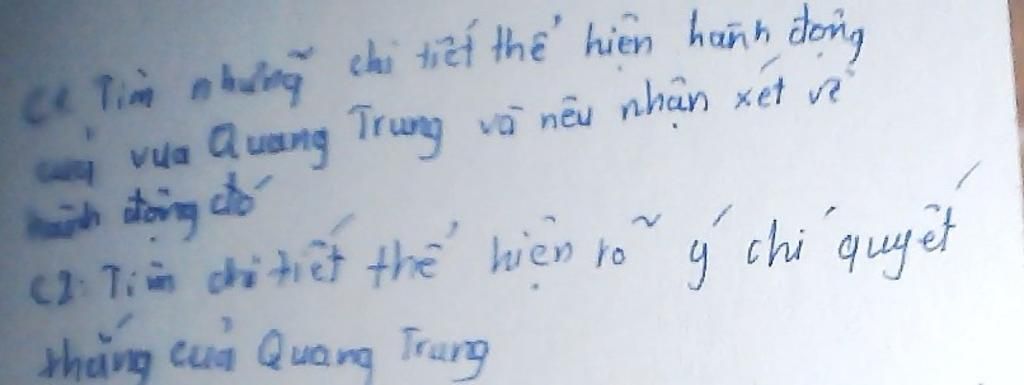 C1. Tìm những chi tiết thể hiện hành động
của vua Quang Trung và nêu nhận xét về
hành động đó
C2: Tìm chi tiết thể hiện rõ ý chí quyết
thắng của Quang Trung